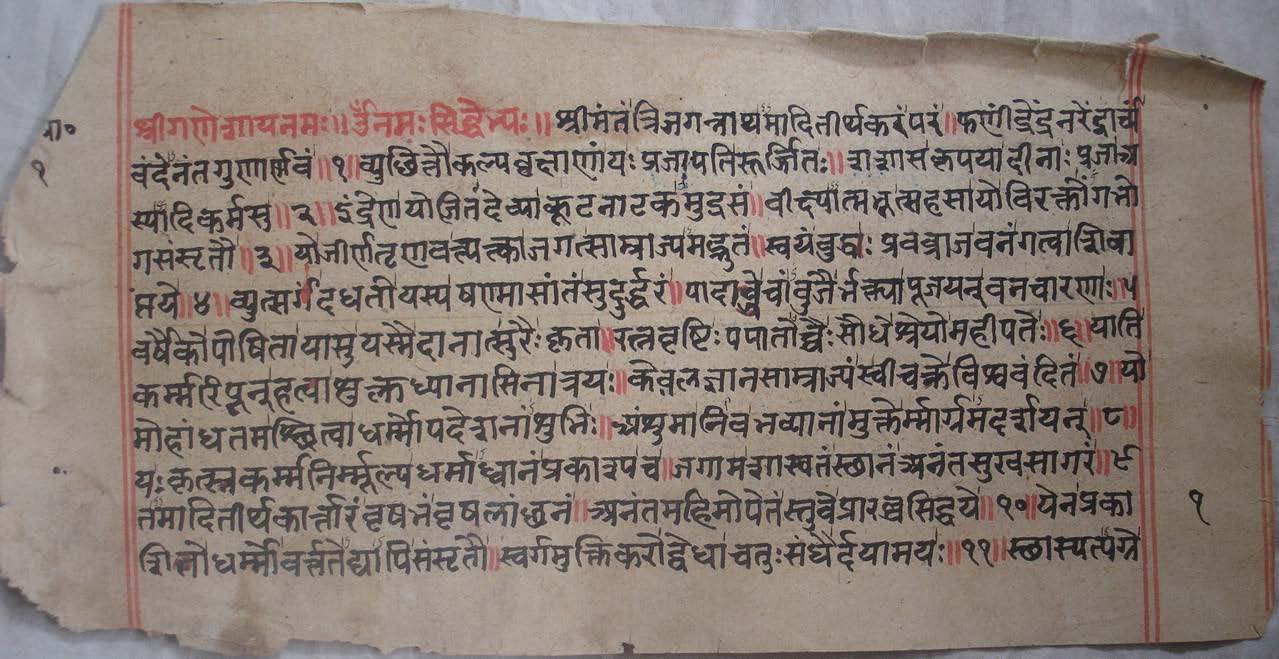 श्रीगणेशायनमः॥ॐनमःसिद्धेभ्यः॥श्रीमंतंत्रिजगन्नाथमादितीर्थकरंपरं॥फणींद्रेंद्रनरेंद्रार्च्यं
वंदेनंतगुणार्णवं॥१॥व्युछित्तौकल्पवृक्षाणांयःप्रजापतिरूर्जितः॥शशासकृपयादीनाःप्रजाश्च
स्यादिकर्मसु॥२॥इंद्रेणयोजितंदेव्याकूटनाटकमुद्रसं॥वीक्ष्यात्महृत्सहसायोविरक्तोंगभो
गसंसृतौ॥३॥योजीर्णतृणवत्त्यत्काजगत्साम्राज्यमद्भुतं॥स्वयंबुद्धःप्रवव्राजवनंगत्वाशिवा
प्तये॥४॥व्युत्सर्गंदधतीयस्यषण्मासांतंसुदुर्द्धरं॥पादावेवांबुजैर्भक्त्यापूजयन्वनचारणः॥५
वर्षैकोपोषितायासुयस्मैदानात्सुरैःकृता॥रत्नवृष्टिःपपातोच्चैःसौधेश्रेयोमहीपतेः॥६॥याति
कर्म्मरिपून्हत्वाशुक्लध्यानासिनात्रयः॥केवलज्ञानसाम्राज्यंस्वीचक्रेविश्ववंदितं॥७॥यो
मोहांधतमश्छित्वाधर्म्मोपदेशनांशुभिः॥अंशुमानिवभव्यानांमुक्तेर्म्मार्गमदर्शयन्॥८॥
यःकृत्स्नकर्म्मनिर्म्मूल्यधर्माध्वानंप्रकाश्यच॥जगामशाश्वतंस्थानंअनंतसुखसागरं॥९
तमादितीर्थकर्त्तारंवृषभंवृषलांछनं॥अनंतमहिमोपेतंस्तुवेप्रारब्धसिद्धये॥१०॥येनप्रका
शितोधर्म्मोवर्त्ततेद्यापिसंसृतौ॥स्वर्गमुक्तिकरोद्वेधाचतुःसंघैर्दयामयः॥११॥स्थास्यत्यग्रे
१
१